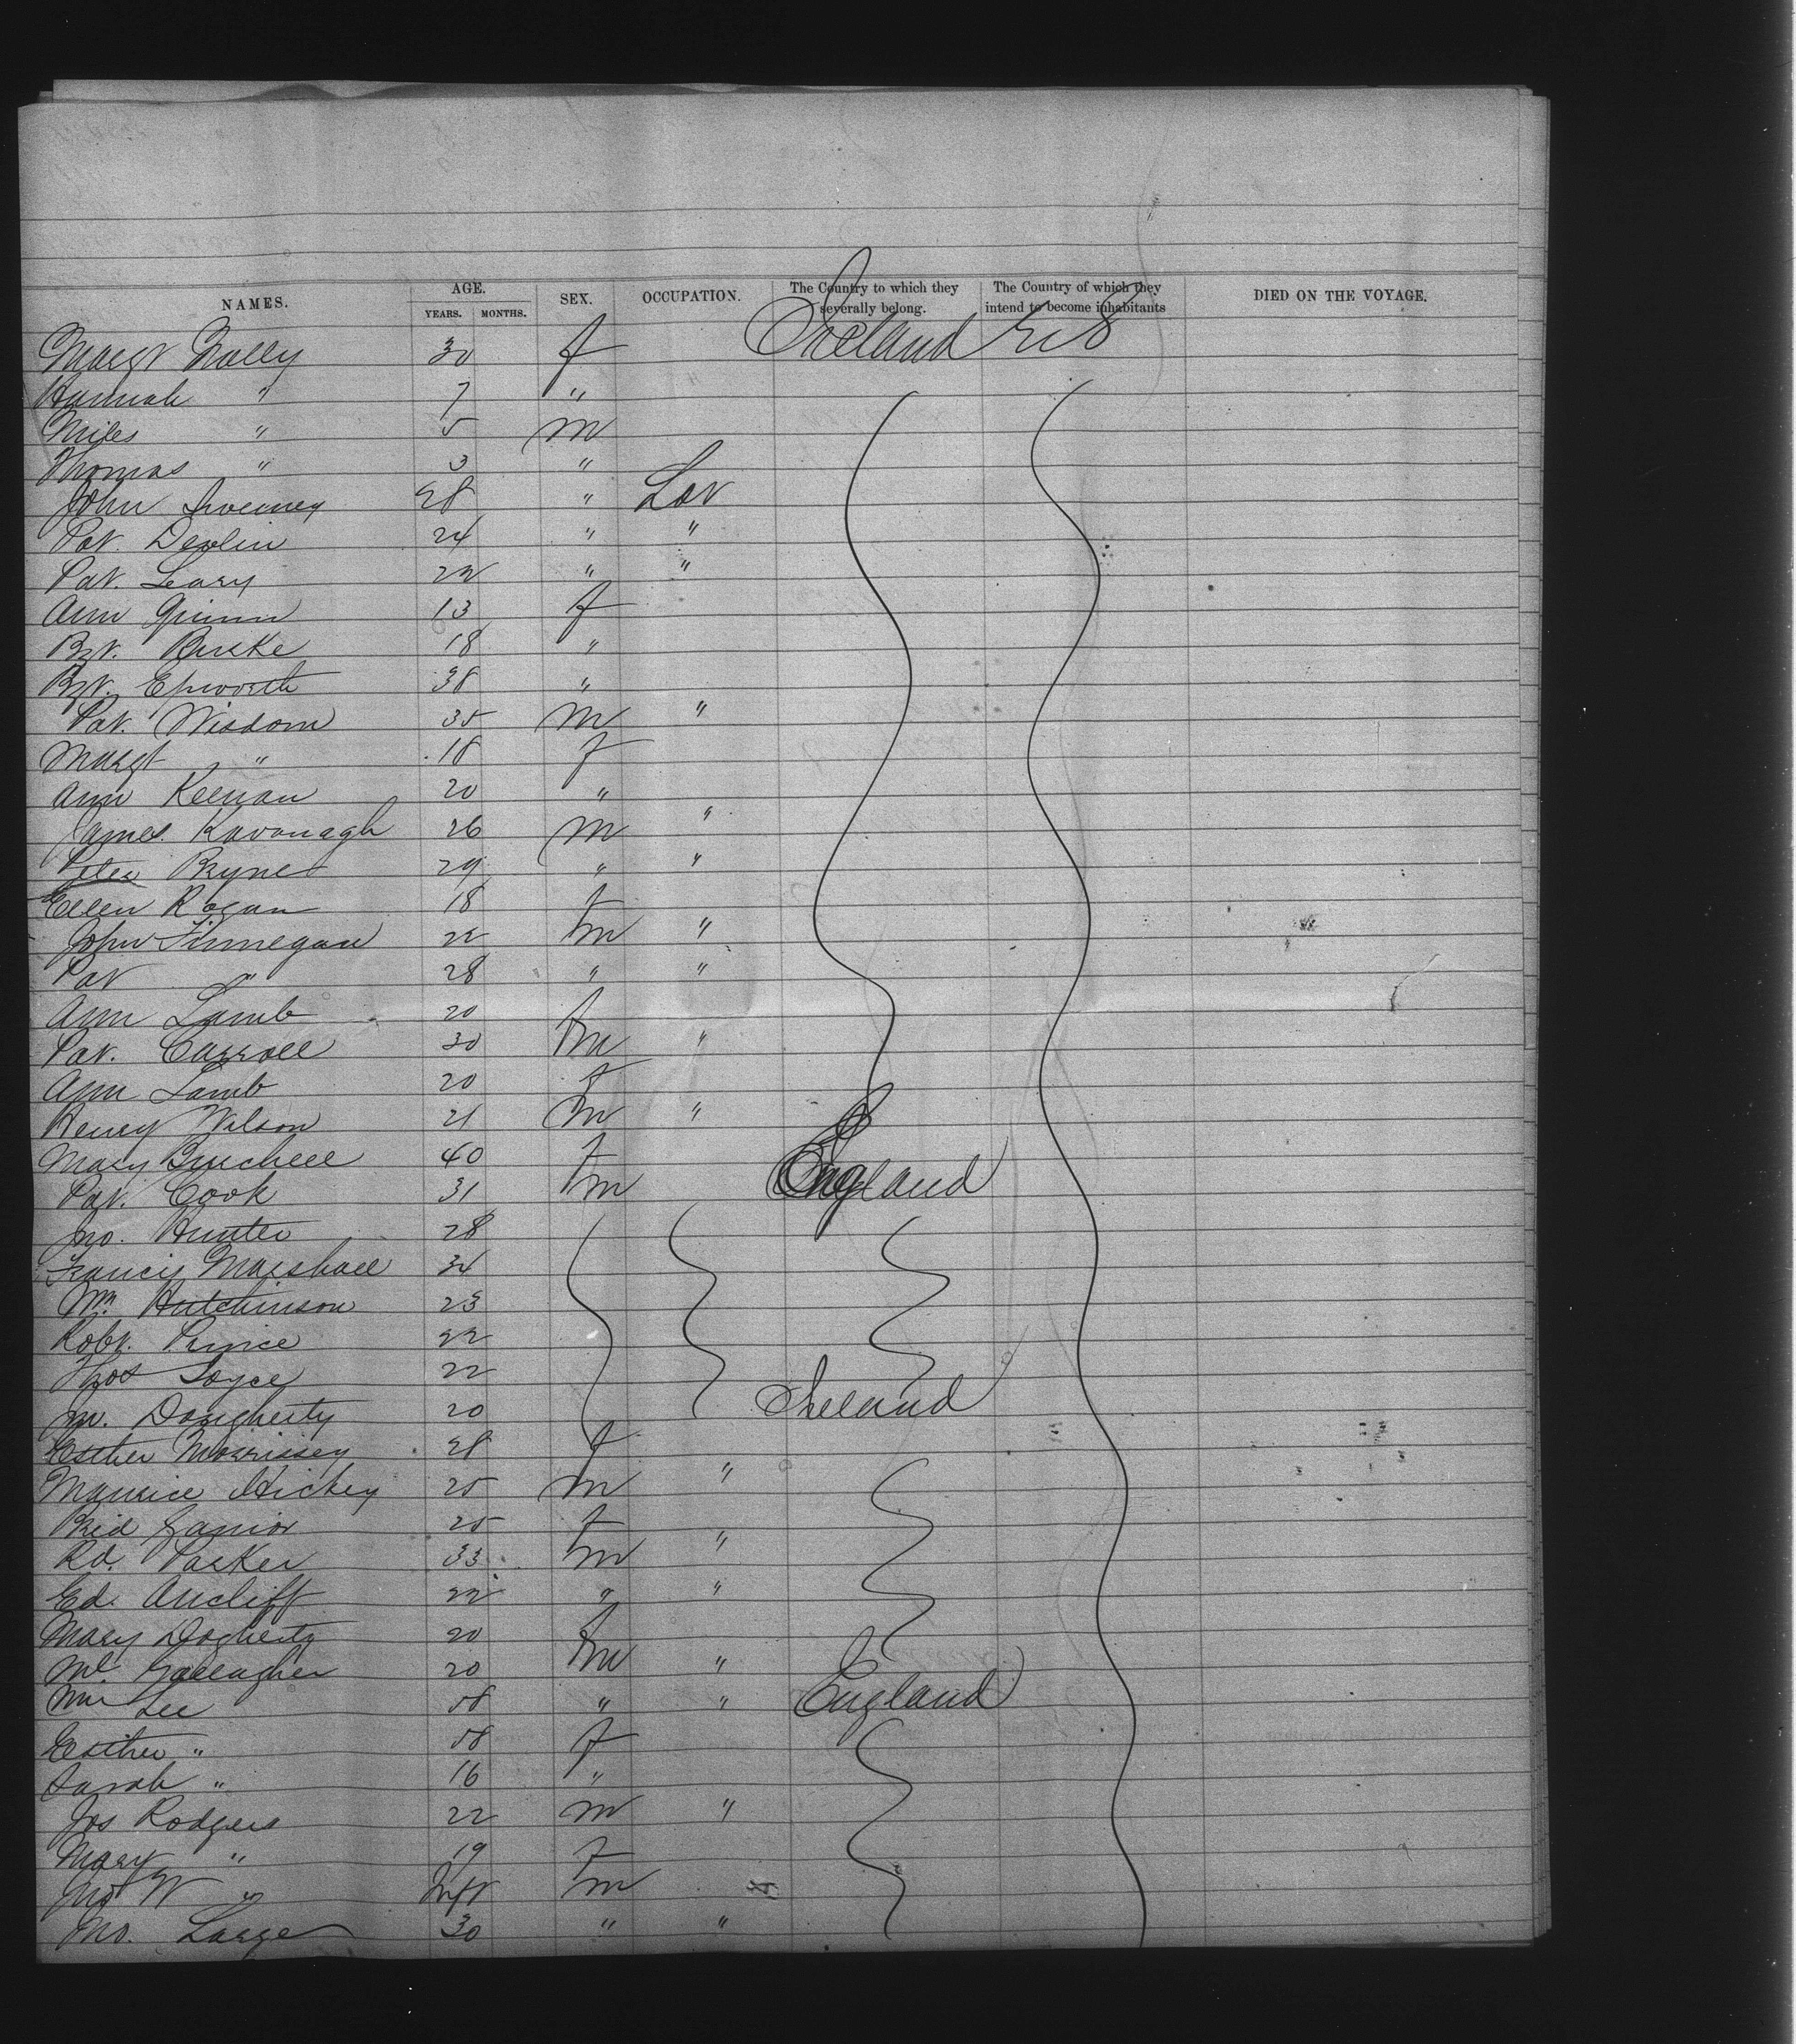 NAMES. AGE. SEX. OCCUPATION. The Country to which they severally belong. The Country of which they intend to become inhabitants DIED ON THE VOYAGE.
YEARS. MONTHS.
Margt Nally 30 f Ireland U S
Hannah " 7 "
Miles " 5 m
Thomas " 3 "
John Sweeney 28 " Lab
Pat. Devlin 24 " "
Pat. Leary 22 " "
Ann Quinn 13 f
Bgt. Burke 18 "
Bgt. Epworth 38 "
Pat. Wisdom 35 m "
Margt " 18 f
Ann Keenan 20 "
James Kavanagh 26 m "
Peter Byrne 29 " "
Ellen Rogan 18 f
John Finnegan 22 m "
Pat " 28 " "
Ann Lamb 20 f
Pat. Carroll 30 m "
Ann Lamb 20 f
Henry Wilson 21 m "
Mary Burchell 40 f England
Pat. Cook 31 m
Jno. Hunter 28
Francis Marshall 34
Wm. Hutchinson 23
Robt. Prince 22
Thos Joyce 22
Jno. Dougherty 20 Ireland
Esther Morrissey 28 f
Maurice Hickey 25 m "
Brid 25 f
Rd. Parker 33 m "
Ed. Ancliff 22 " "
Mary Dogherty 20 f
Ml Gallagher 20 m "
Wm Lee 58 " " England
Esther " 58 f
Sarah " 16 "
Jos Rodgers 22 m "
Mary " 19 f
Jno W " Inft m
Jno. Large 30 " "